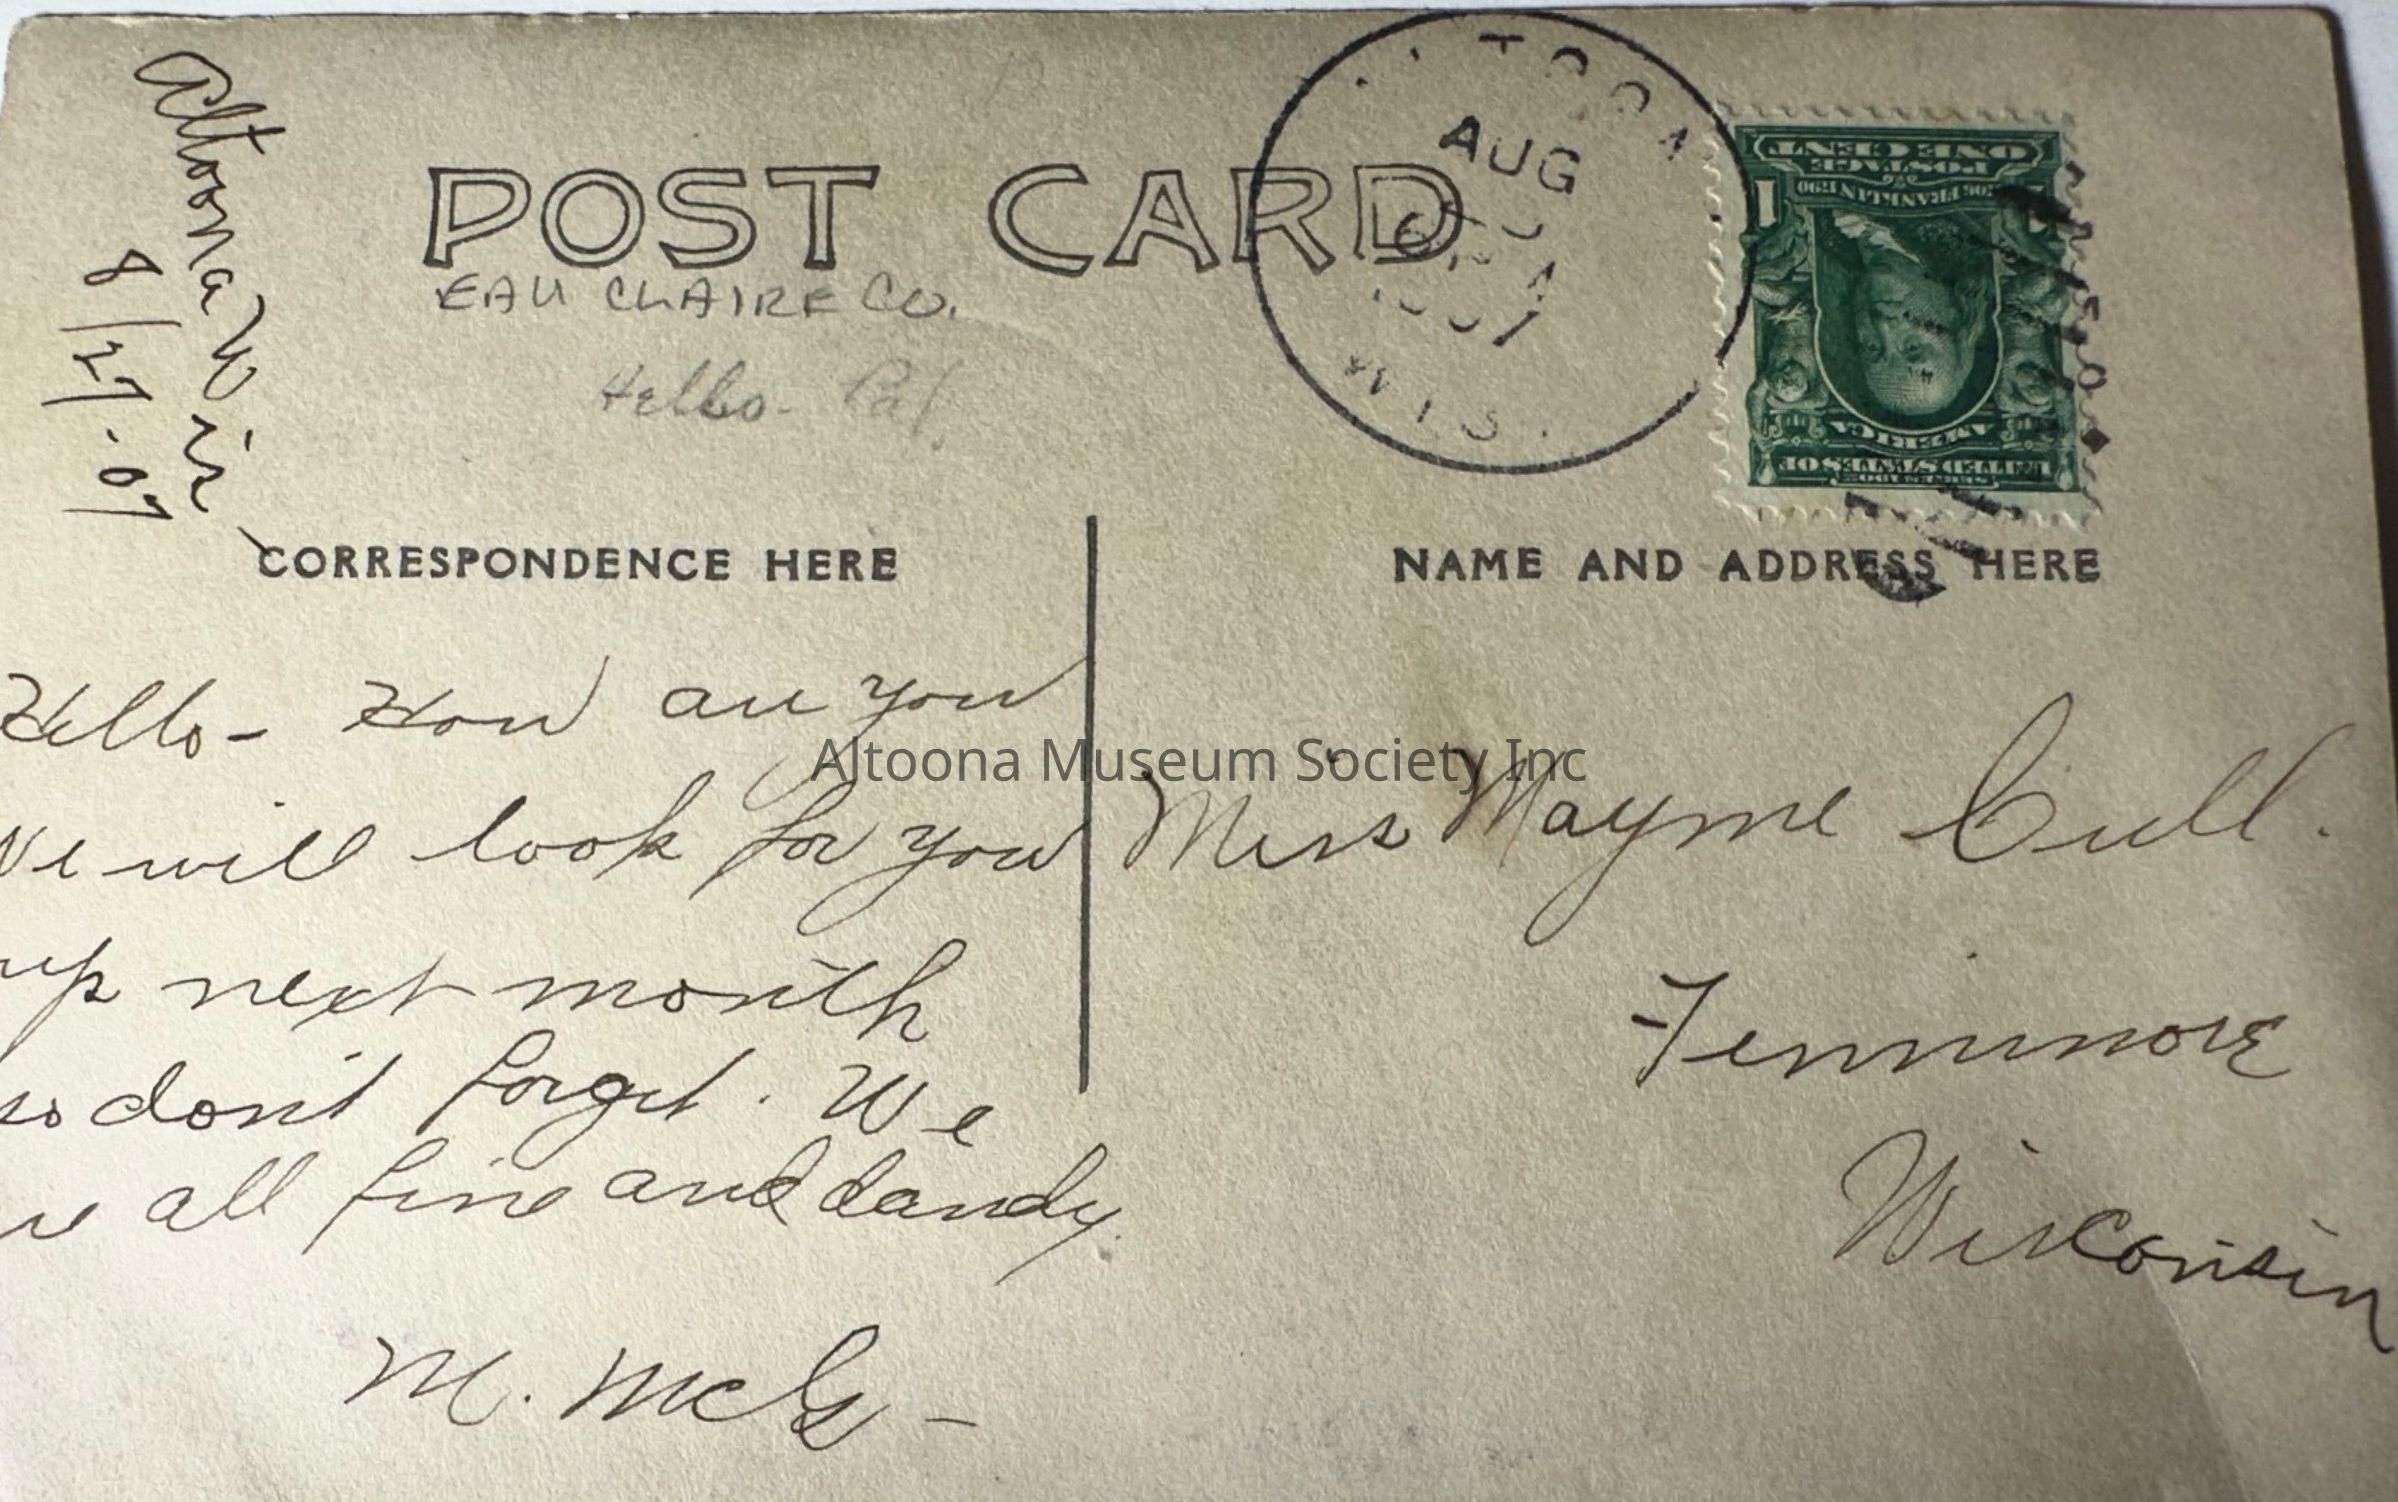 Altoona Wis
8/27.07
POST CARD
EAU CLAIRE CO.
Hello - Pal.
AUG
WIS.
ONE CENT
POSTAGE
FRANKLIN 1790
1
AMERICA
UNITED STATES OF
SERIES 1902
CORRESPONDENCE HERE
NAME AND ADDRESS HERE
Hello - How are you
We will look for you
up next month
so don't forget. We
are all fine and dandy.
M. McG -
Miss Mayme Cull.
Fennimore
Wisconsin
Altoona Museum Society Inc